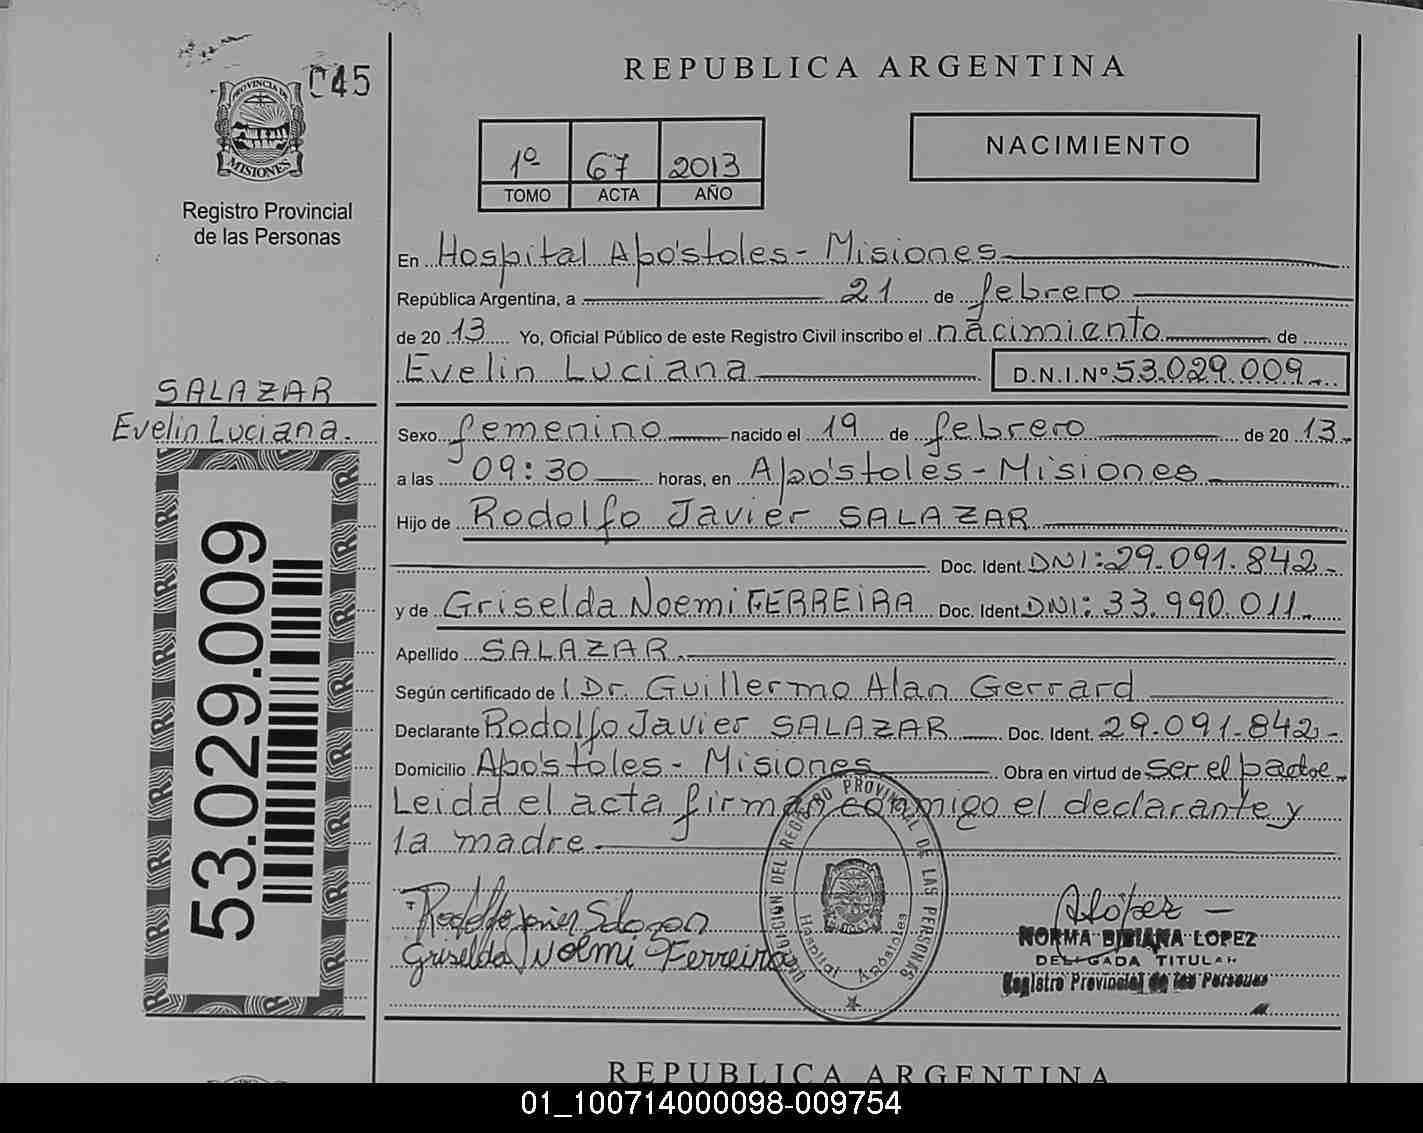 045
PROVINCIA DE
MISIONES
Registro Provincial
de las Personas
SALAZAR
Evelin Luciana.
53.029.009
REPUBLICA ARGENTINA
1º 67 2013
TOMO ACTA AÑO
NACIMIENTO
En Hospital Apóstoles - Misiones
República Argentina, a 21 de febrero
de 2013 Yo, Oficial Público de este Registro Civil inscribo el nacimiento de
Evelin Luciana D.N.I.Nº 53.029.009
Sexo femenino nacido el 19 de febrero de 2013
a las 09:30 horas, en Apóstoles - Misiones
Hijo de Rodolfo Javier SALAZAR
Doc. Ident. DNI: 29.091.842
y de Griselda Noemi FERREIRA Doc. Ident. DNI: 33.990.011
Apellido SALAZAR
Según certificado de Dr. Guillermo Alan Gerrard
Declarante Rodolfo Javier SALAZAR Doc. Ident. 29.091.842
Domicilio Apóstoles - Misiones Obra en virtud de ser el padre
Leida el acta firman conmigo el declarante y
la madre
DIRECCION DEL REGISTRO PROVINCIAL DE LAS PERSONAS
Hospital Apóstoles
Griselda Noemi Ferreira
NORMA BIBIANA LOPEZ
DELEGADA TITULAR
Registro Provincial de las Personas
REPUBLICA ARGENTINA
01_100714000098-009754